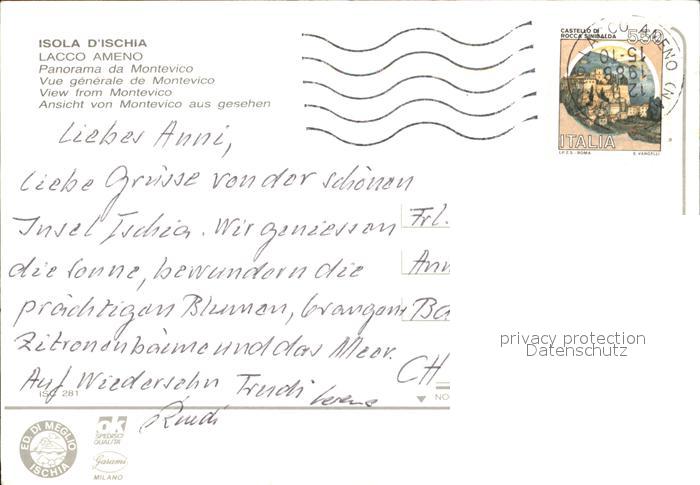 ISOLA D'ISCHIA
LACCO AMENO
Panorama da Montevico
Vue générale de Montevico
View from Montevico
Ansicht von Montevico aus gesehen
CASTELLO DI
ROCCA SINIBALDA
550
ITALIA
I.P.Z.S. - ROMA E. VANGELLI
LACCO AMENO (NA)
15-10
1985
12
Liebes Anni,
Liebe Grüsse von der schönen
Insel Ischia. Wir geniessen
die Sonne, bewundern die
prächtigen Blumen, Orangen,
Zitronenbäime und das Meer.
Auf Wiedersehn Trudi
Ruedi
Frl.
Ann
Ba
CH
privacy protection
Datenschutz
ISC 281
NO
ED. DI MEGLIO
ISCHIA
ok
SPEDISCI
QUALITÀ
Garami
MILANO